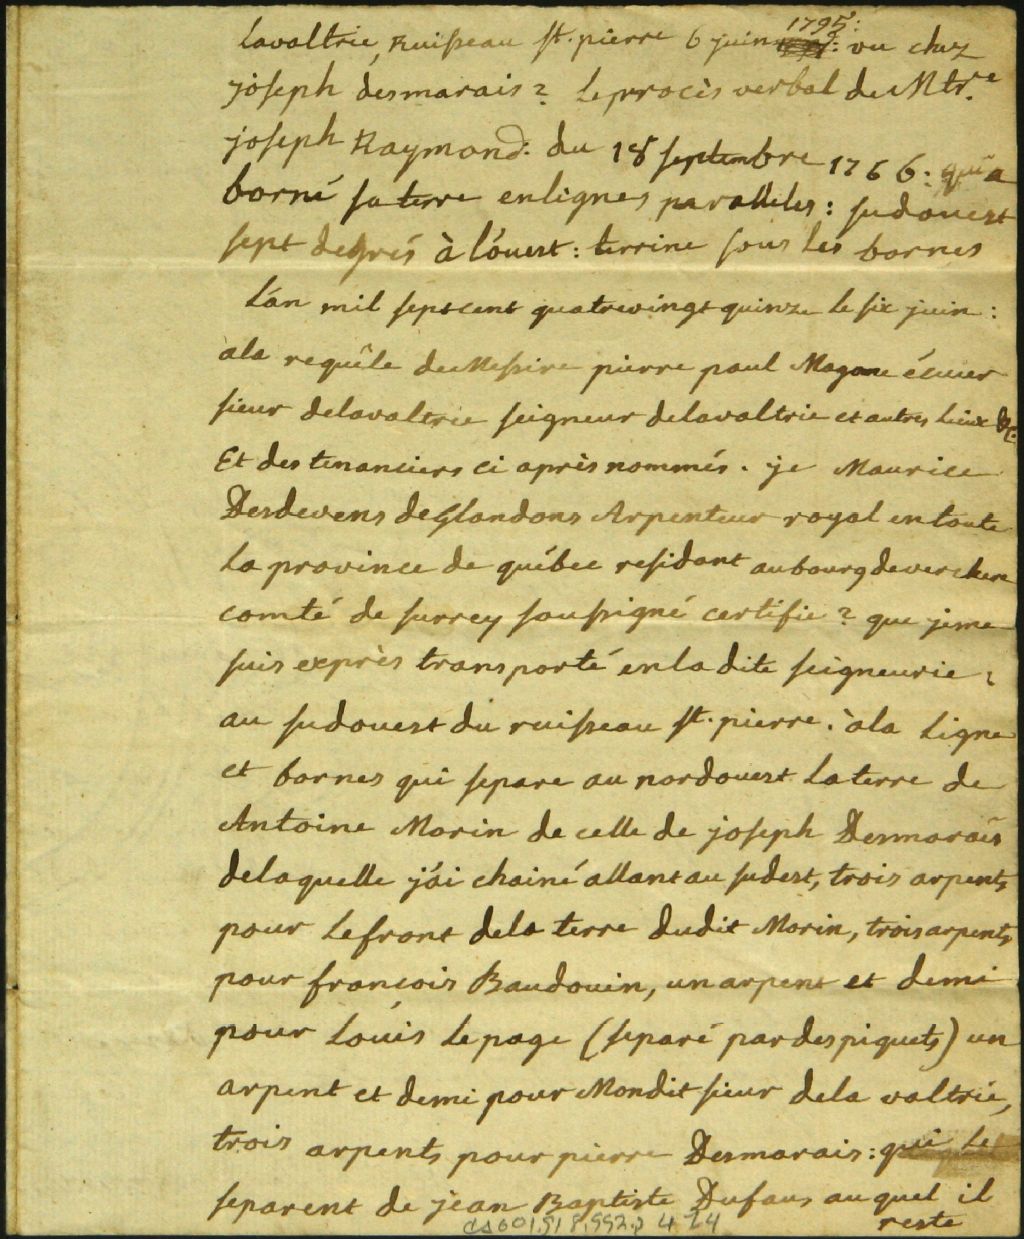 1795:
Lavaltrie, Ruisseau st. pierre 6 juin : vu chez
joseph desmarais? Le procès verbal de Mtr.e
joseph Raymond: du 18 septembre 1766: qui a
borné sa terre en lignes paralleles: sudouest
sept degrés à l'ouest: terrine sous les bornes
L'an mil sept cent quatrevingt quinze le six juin:
a la requête de Messire pierre paul Magane écuier
sieur delavaltrie seigneur delavaltrie et autres Lieux &c.
Et des tenanciers ci après nommés. je Maurice
Desdevens de glandons Arpenteur royal en toute
La province de québec residant au bourg de verchere
comté de surrey soussigné certifie? que je me
suis exprès transporté en la dite seigneurie,
au sudouest du ruisseau st. pierre. à la Ligne
et bornes qui separe au nordouest La terre de
Antoine Morin de celle de joseph Desmarais
de laquelle j'ai chainé allant au sudest, trois arpents
pour Le front dela terre dudit Morin, trois arpents
pour francois Baudouin, un arpent et demi
pour Louis Lepage (separé par des piquets) un
arpent et demi pour Mondit sieur dela valtrie,
trois arpents pour pierre Desmarais: qui Le
separent de jean Baptiste Dufaus auquel il
reste